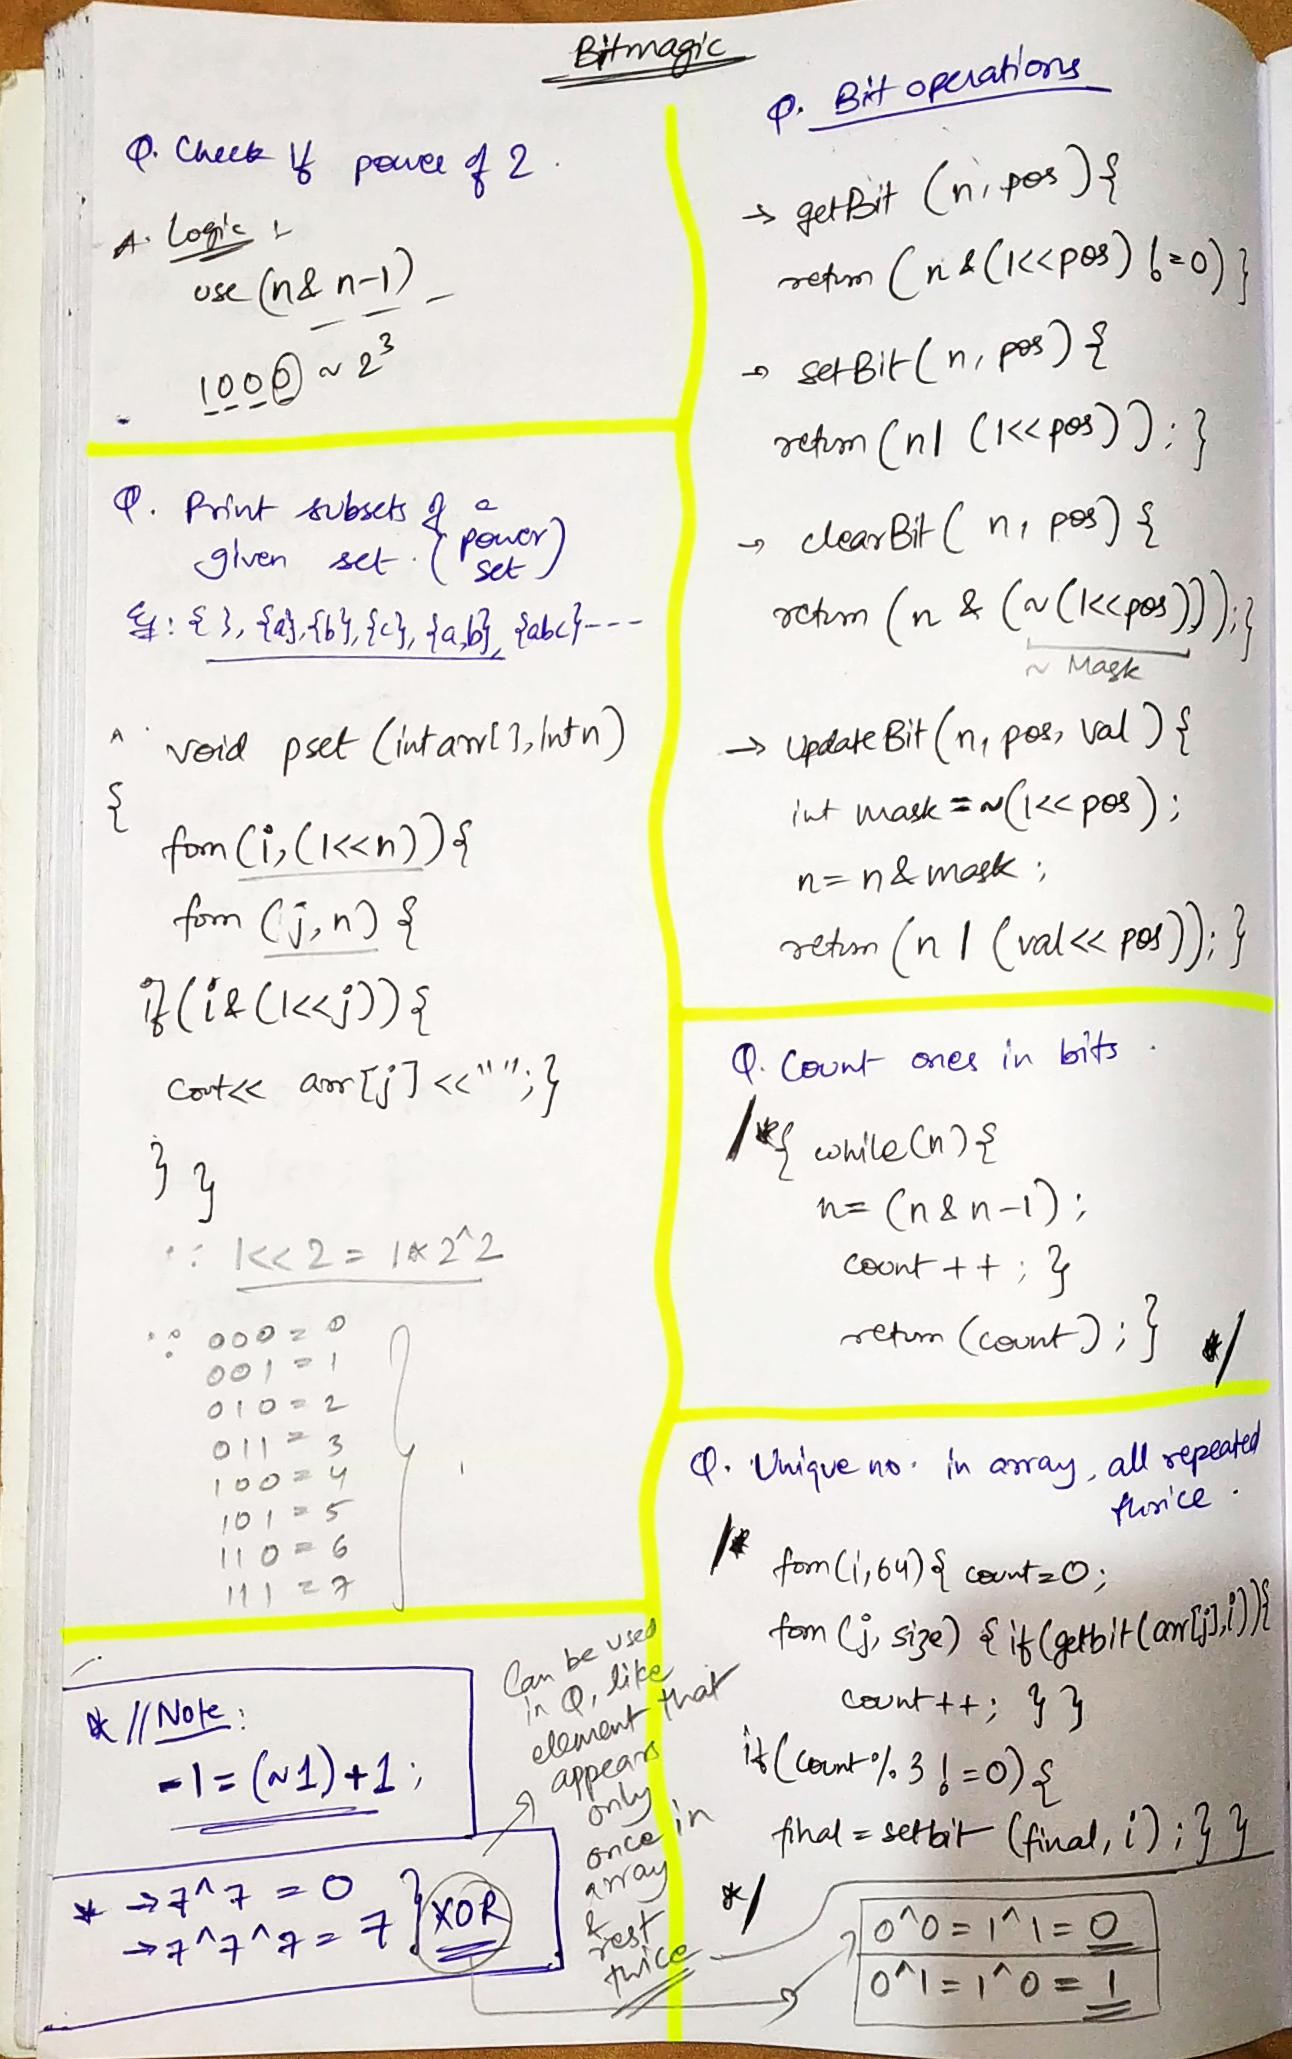 Bitmagic
Q. Check if power of 2.
A. Logic :
use (n & n-1)
1000 ~ 2^3
Q. Print subsets of a
given set. (power set)
Eg: { }, {a}, {b}, {c}, {a,b}, {abc}---
A. void pset (int arr[], int n)
{
forn(i, (1<<n)){
forn (j, n) {
if(i & (1<<j)){
cout<< arr[j] <<" ";}
} }
∵ 1<<2 = 1*2^2
∵ 000 = 0
001 = 1
010 = 2
011 = 3
100 = 4
101 = 5
110 = 6
111 = 7
* // Note:
-1 = (~1)+1;
* → 7^7 = 0
→ 7^7^7 = 7 } XOR
Can be used
in Q, like
element that
appears
only
once in
array
& rest
twice
Q. Bit operations
→ getBit (n, pos) {
return (n & (1<<pos) != 0) }
→ setBit (n, pos) {
return (n | (1<<pos)); }
→ clearBit (n, pos) {
return (n & (~(1<<pos))); }
~ Mask
→ UpdateBit (n, pos, val) {
int mask = ~(1<<pos);
n = n & mask;
return (n | (val<<pos)); }
Q. Count ones in bits.
/*{ while(n) {
n = (n & n-1);
count++; }
return (count); } */
Q. Unique no. in array, all repeated
thrice.
/* forn(i,64) { count=0;
forn (j, size) { if(getbit(arr[j],i)){
count++; } }
if(count%3 != 0) {
final = setbit (final, i); } }
*/
0^0 = 1^1 = 0
0^1 = 1^0 = 1